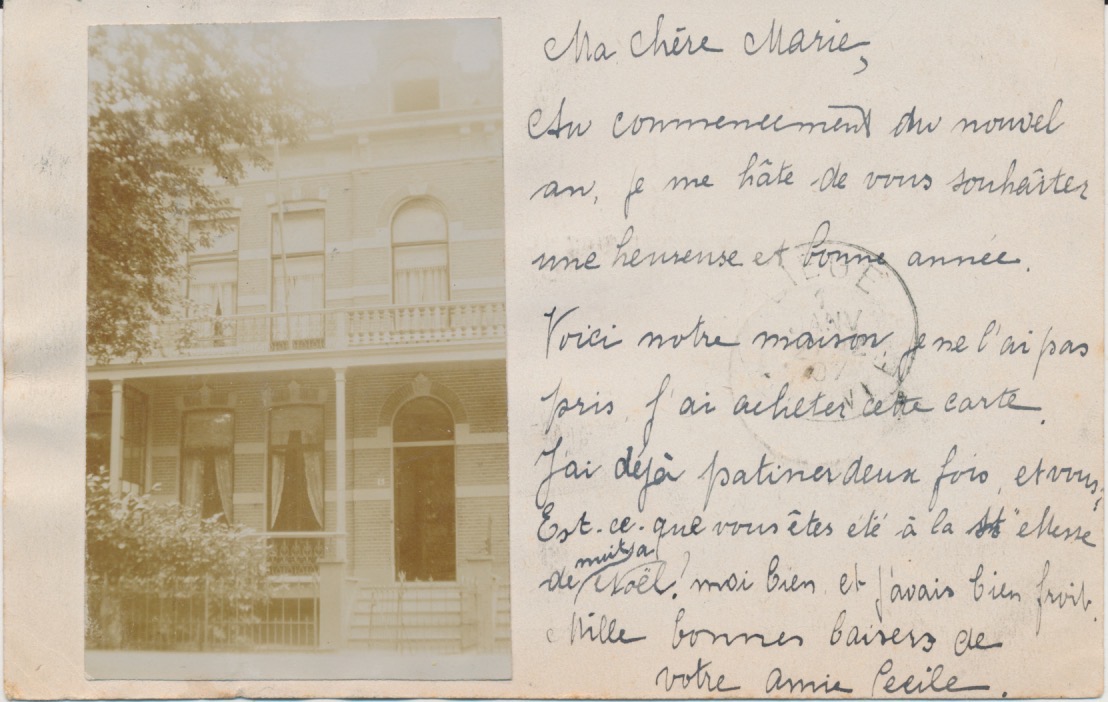 Ma chère Marie,
Au commencement du nouvel
an, je me hâte de vous souhaiter
une heureuse et bonne année.
Voici notre maison je ne l'ai pas
pris, j'ai acheter cette carte.
J'ai déjà patiner deux fois, et vous,
Est-ce-que vous êtes été à la Messe
de nuit à Noël? moi bien et j'avais bien froit.
Mille bonnes baisers de
votre amie Cecile.
JANV
07